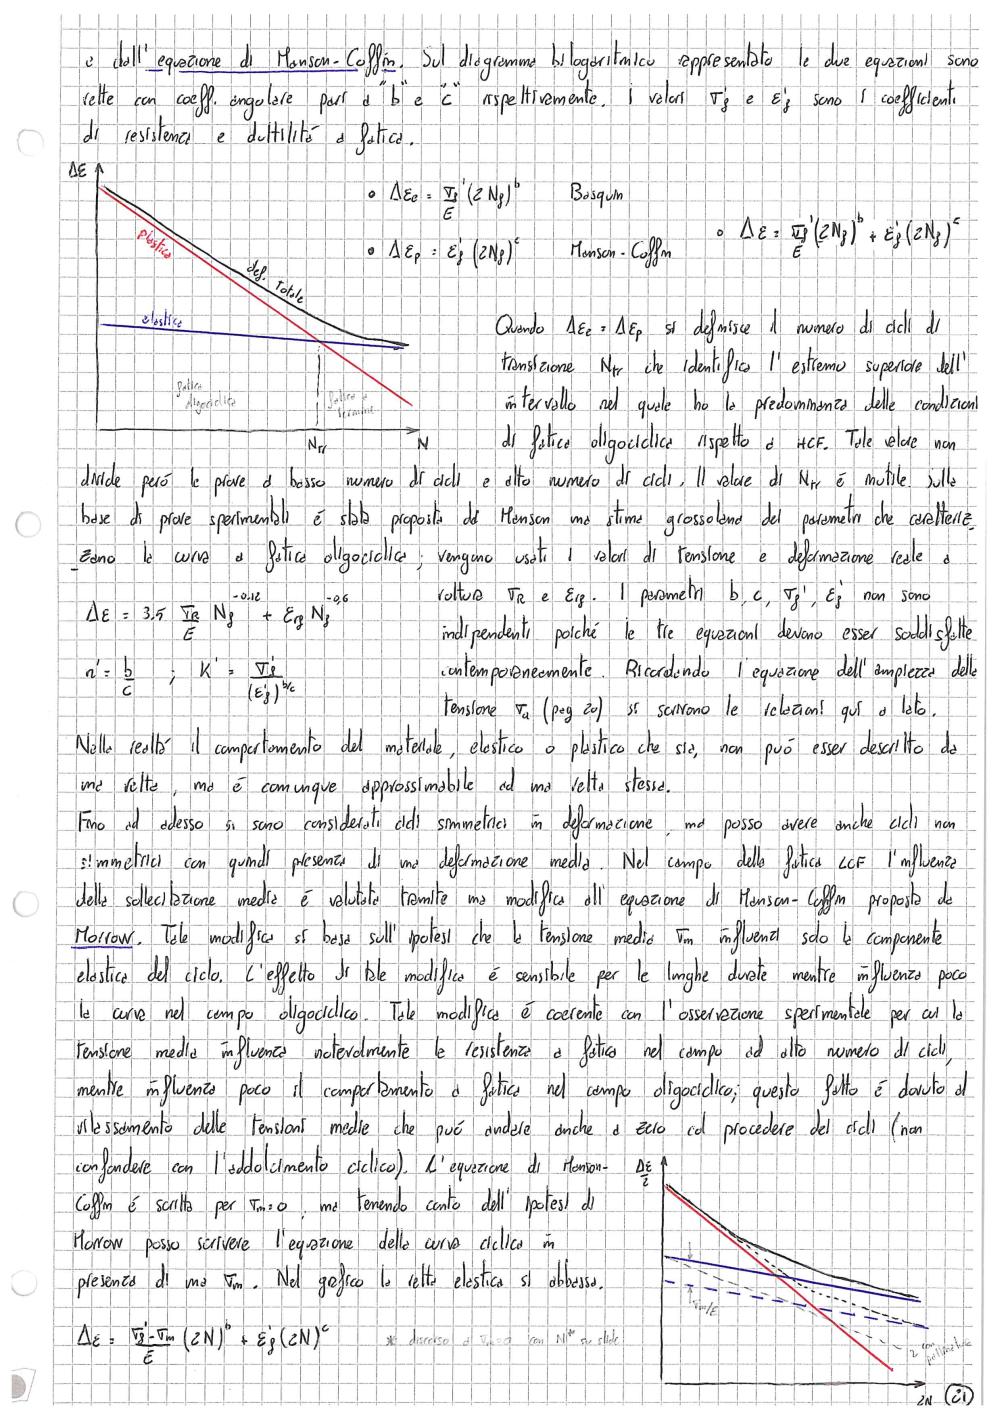 e dall'equazione di Manson-Coffin. Sul diagramma bilogaritmico rappresentato le due equazioni sono
rette con coeff. angolare pari a "b" e "c" rispettivamente. I valori σf' e εf' sono i coefficienti
di resistenza e duttilità a fatica.
Δε
plastica
def. totale
elastica
fatica oligociclica
fatica a termine
Ntr
N
• Δεe = σf'/E (2Nf)^b Basquin
• Δεp = εf' (2Nf)^c Manson-Coffin
• Δε = σf'/E (2Nf)^b + εf' (2Nf)^c
Quando Δεe = Δεp si definisce il numero di cicli di
transizione Ntr che identifica l'estremo superiore dell'
intervallo nel quale ho la predominanza delle condizioni
di fatica oligociclica rispetto a HCF. Tale valore non
divide però le prove a basso numero di cicli e alto numero di cicli. Il valore di Ntr è inutile. Sulla
base di prove sperimentali è stata proposta da Manson una stima grossolana dei parametri che caratteriz_
_zano la curva a fatica oligociclica; vengono usati i valori di tensione e deformazione reale a
rottura σR e εrf. I parametri b, c, σf', εf' non sono
indipendenti poiché le tre equazioni devono esser soddisfatte
contemporaneamente. Ricordando l'equazione dell'ampiezza della
tensione σa (pag 20) si scrivono le relazioni qui a lato.
Δε = 3.5 σR/E Nf^-0.12 + εrf Nf^-0,6
n' = b/c ; K' = σf'/(εf')^b/c
Nella realtà il comportamento del materiale, elastico o plastico che sia, non può esser descritto da
una retta, ma è comunque approssimabile ad una retta stessa.
Fino ad adesso si sono considerati cicli simmetrici in deformazione, ma posso avere anche cicli non
simmetrici con quindi presenza di una deformazione media. Nel campo della fatica LCF l'influenza
della sollecitazione media è valutata tramite una modifica all'equazione di Manson-Coffin proposta da
Morrow. Tale modifica si basa sull'ipotesi che la tensione media σm influenzi solo la componente
elastica del ciclo. L'effetto di tale modifica è sensibile per le lunghe durate mentre influenza poco
la curva nel campo oligociclico. Tale modifica è coerente con l'osservazione sperimentale per cui la
tensione media influenza notevolmente la resistenza a fatica nel campo ad alto numero di cicli,
mentre influenza poco il comportamento a fatica nel campo oligociclico; questo fatto è dovuto al
rilassamento delle tensioni medie che può andare anche a zero col procedere dei cicli (non
confondere con l'addolcimento ciclico). L'equazione di Manson-
Coffin è scritta per σm=0, ma tenendo conto dell'ipotesi di
Morrow posso scrivere l'equazione della curva ciclica in
presenza di una σm. Nel grafico la retta elastica si abbassa.
Δε = σf'-σm/E (2N)^b + εf' (2N)^c
* discorso con su slide
Δε/2
σm/E
2 con
2N
21